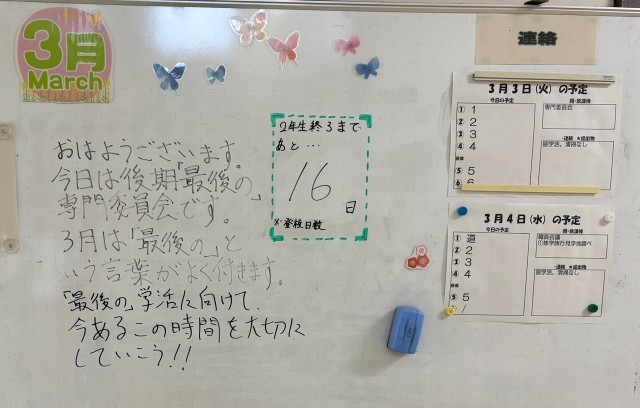 3月
March
おはようございます。
今日は後期「最後の」
専門委員会です。
3月は「最後の」と
いう言葉がよく付きます。
「最後の」学活に向けて
今あるこの時間を大切に
していこう!!
2年生終るまで
あと…
16
日
※登校日数
連絡
3月3日(火)の予定
今日の予定
朝・放課後
① 1
専門委員会
② 2
③ 3
・連絡 ★提出物
④ 4
昼学活、清掃なし
⑤ 5
⑥ 6
3月4日(水)の予定
今日の予定
朝・放課後
① 道
職員会議
② 2
①修学旅行見学地調べ
③ 3
・連絡 ★提出物
④ 4
昼学活、清掃なし
⑤ 5